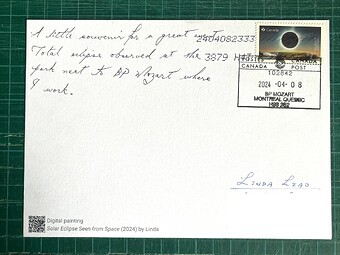 A little souvenir for a great
2404082333
Total eclipse observed at the
3879
park next to BP Mozart where
I work.
CANADA
CANADA POST
102842
2024 -04- 08
BP MOZART
MONTREAL QUEBEC
Linda Lead
Digital painting
Solar Eclipse Seen from Space (2024) by Linda